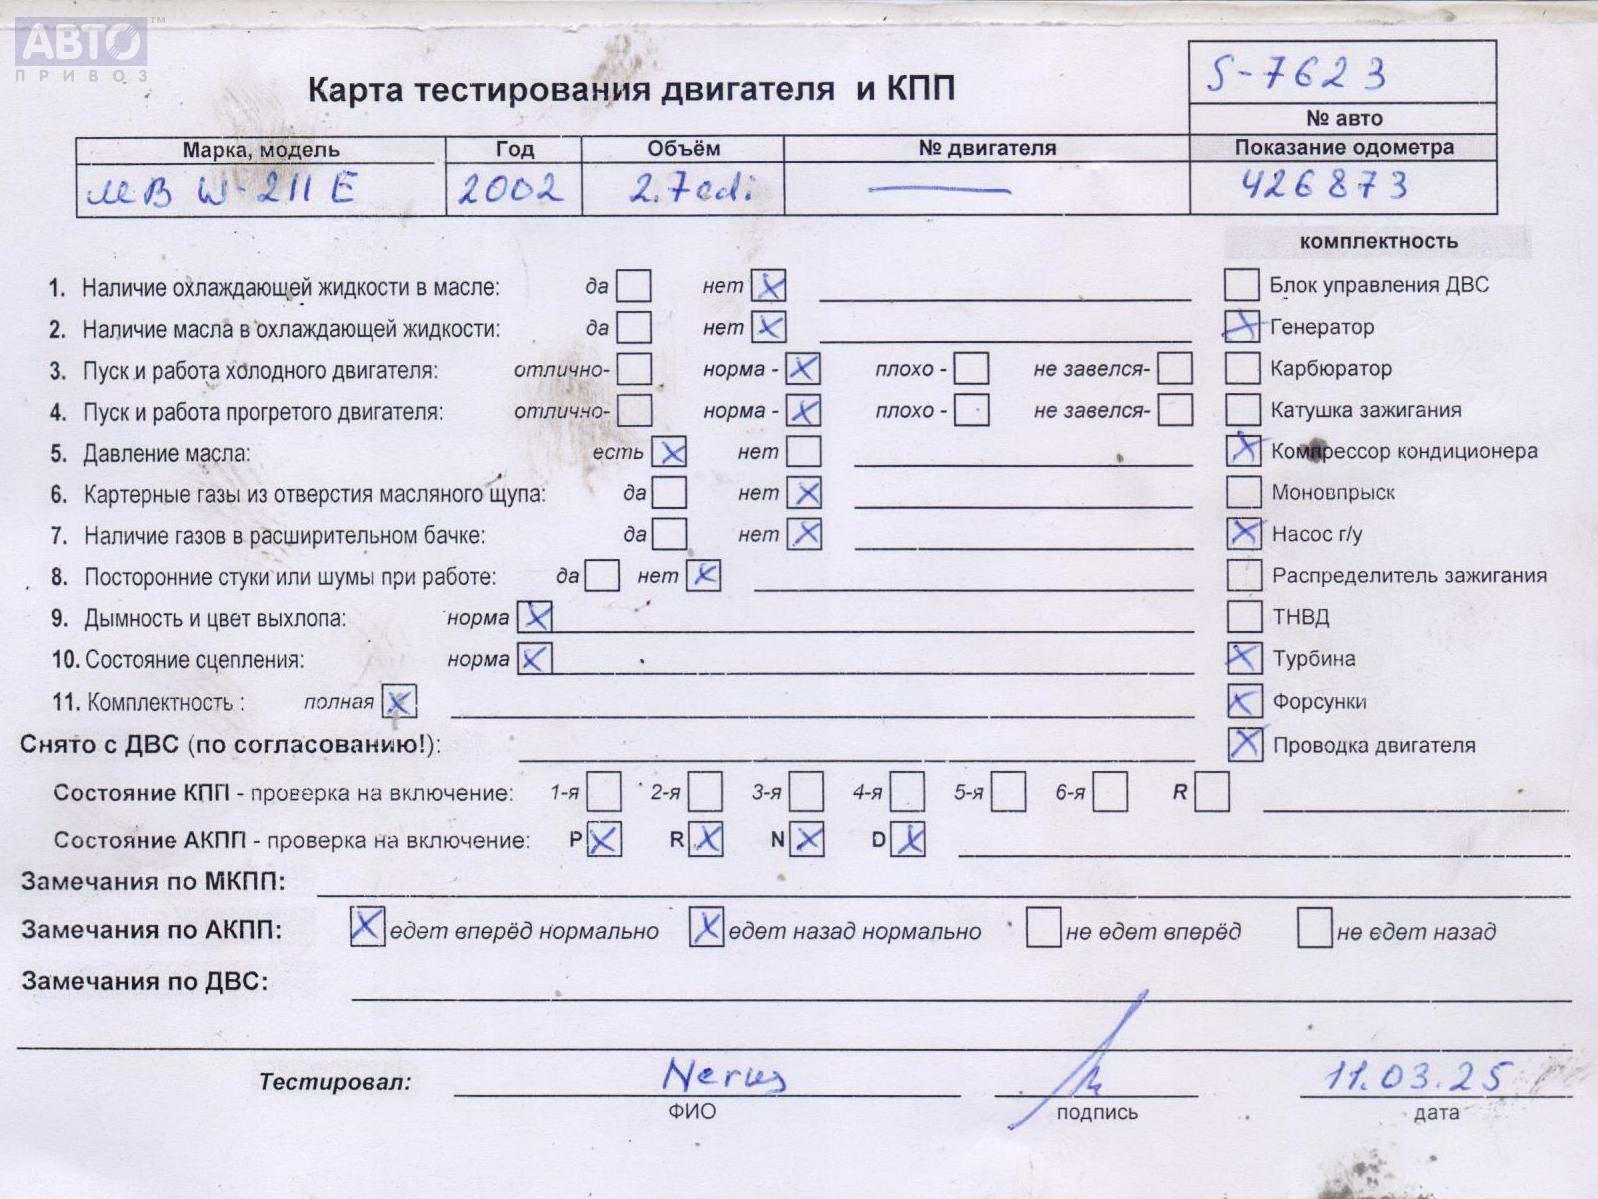 АВТО™
ПРИВОЗ
Карта тестирования двигателя и КПП
S-7623
№ авто
Марка, модель Год Объём № двигателя Показание одометра
МВ W-211 E 2002 2.7cdi — 426873
комплектность
1. Наличие охлаждающей жидкости в масле: да нет X Блок управления ДВС
2. Наличие масла в охлаждающей жидкости: да нет X X Генератор
3. Пуск и работа холодного двигателя: отлично- норма - X плохо - не завелся- Карбюратор
4. Пуск и работа прогретого двигателя: отлично- норма - X плохо - не завелся- Катушка зажигания
5. Давление масла: есть X нет X Компрессор кондиционера
6. Картерные газы из отверстия масляного щупа: да нет X Моновпрыск
7. Наличие газов в расширительном бачке: да нет X X Насос г/у
8. Посторонние стуки или шумы при работе: да нет X Распределитель зажигания
9. Дымность и цвет выхлопа: норма X ТНВД
10. Состояние сцепления: норма X X Турбина
11. Комплектность : полная X X Форсунки
Снято с ДВС (по согласованию!): X Проводка двигателя
Состояние КПП - проверка на включение: 1-я 2-я 3-я 4-я 5-я 6-я R
Состояние АКПП - проверка на включение: P X R X N X D X
Замечания по МКПП:
Замечания по АКПП: X едет вперёд нормально X едет назад нормально не едет вперёд не едет назад
Замечания по ДВС:
Тестировал: 11.03.25
ФИО подпись дата